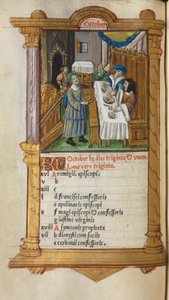 October
October hʒ dies triginta ⁊ unum.
Luna vero triginta.
xvi A remigii. episcopi.
v b
xiii c
ii d francisci confessoris
e apolinaris episcopi
x f magi episcopi ⁊ confessoris
g iustine virginis
xviii A symonis prophete
vii b dionysii cum sociis
e cerbonii confessoris.